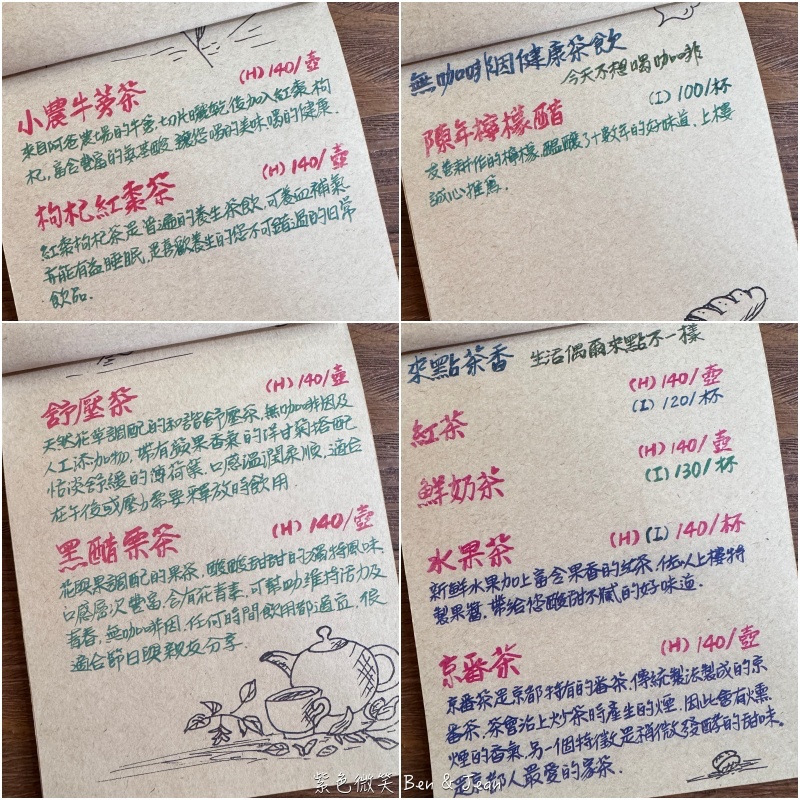 小農牛蒡茶
(H) 140/壺
來自阿爸農場的牛蒡,切片曬乾後加入紅棗、枸
杞,富含豐富的氨基酸,讓您喝的美味喝的健康.
枸杞紅棗茶
(H) 140/壺
紅棗枸杞茶是普遍的養生茶飲,可養血補氣
亦能有益睡眠,是喜歡養生的您不可錯過的日常
飲品.
無咖啡因健康茶飲
今天不想喝咖啡
陳年檸檬醋
(I) 100/杯
友善耕作的檸檬,醞釀了十數年的好味道,上樓
誠心推薦.
舒壓茶
(H) 140/壺
天然花草調配的和諧舒壓茶,無咖啡因及
人工添加物,帶有蘋果香氣的洋甘菊搭配
恬淡舒緩的薄荷葉,口感溫潤柔順,適合
在午後或壓力需要釋放時飲用.
黑醋栗茶
(H) 140/壺
花與果調配的果茶,酸酸甜甜的獨特風味
口感層次豐富,含有花青素,可幫助維持活力及
青春,無咖啡因,任何時間飲用都適宜,很
適合節日與親友分享.
來點茶香
生活偶爾來點不一樣
紅茶
(H) 140/壺
(I) 120/杯
鮮奶茶
(H) 140/壺
(I) 130/杯
水果茶
(H) (I) 140/杯
新鮮水果加上富含果香的紅茶,佐以上樓特
製果醬,帶給您酸甜不膩的好味道.
京番茶
(H) 140/壺
京番茶是京都特有的番茶,傳統製法製成的京
番茶,茶會沾上炒茶時產生的煙,因此會有燻
煙的香氣,另一個特徵是稍微發酵的甜味。
是京都人最愛的家茶.
紫色微笑 Ben & Jean